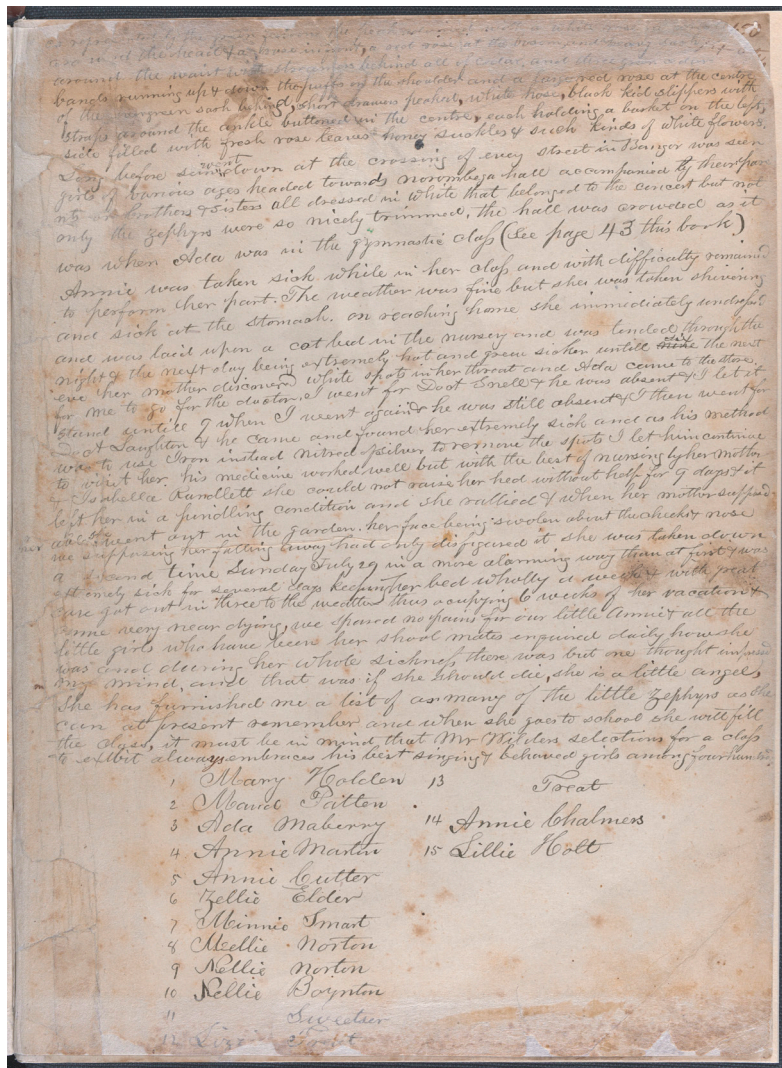 150
around the waist with streamers behind all of
bands running up & down the puffs on the shoulder and a red rose at the centre
of the evergreen sash behind, short drawers peaked, white hose, black kid slippers with
straps around the ankle buttoned in the centre, each holding a basket on the left
side filled with fresh rose leaves honey suckles & such kinds of white flowers.
Long before sun went down at the crossing of every street in Bangor was seen
girls of various ages headed towards norombega hall acompanied by their pare
nts or brothers & sisters all dressed in white that belonged to the concert but not
only the zephyrs were so nicely trimmed, the hall was crowded as it
was when Ada was in the gymnastic class (See page 43 this book)
Annie was taken sick while in her class and with difficulty remained
to perform her part. The weather was fine but she was taken shivering
and sick at the stomach. on reaching home she immediately undrest
and was laid upon a cot bed in the nursery and was tended through the
night & the next day being extremely hot and grew sicker untill the next
eve her mother discoverd white spots in her throat and Ada came to the store
for me to go for the doctor. I went for Doct Snell & he was absent & I let it
stand untill 9 when I went again & he was still absent & I then went for
Doct Laughton & he came and found her extremely sick and as his method
was to use Iron instead nitred of silver to remove the spots I let him continue
to visit her. his medicine worked well but with the best of nursing by her mother
& Isabella Rundlett she could not raise her hed without help for 9 days & it
left her in a pindling condition and she rallied & when her mother supposed
went out in the garden. her face being swolen about the cheeks & nose
we supposing her fatting away had only disfigured it she was taken down
a second time Sunday July 29 in a more alarming way then at first & was
extremely sick for several days keeping her bed wholly a week & with great
care got out in three to the weather thus ocupying 6 weeks of her vacation &
came very near dying, we spared no pains for our little Annie & all the
little girls who have been her shool mates enquired daily how she
was and dureing her whole sickness there was but one thought impressed
my mind, and that was if she should die, she is a little angel,
She has furnished me a list of as many of the little Zephyrs as she
can at present remember and when she goes to school she will fill
the class, it must be in mind that Mr Wilders selections for a class
to exibit always embraces his best singing & behaved girls among four hundred
1 Mary Holden
2 Maud Patten
3 Ada Maberry
4 Annie Martin
5 Annie Cutter
6 Zellie Elder
7 Minnie Smart
8 Mellie Norton
9 Nellie Norton
10 Nellie Boynton
11 Sweetser
12
13 Treat
14 Annie Chalmers
15 Lillie Holt